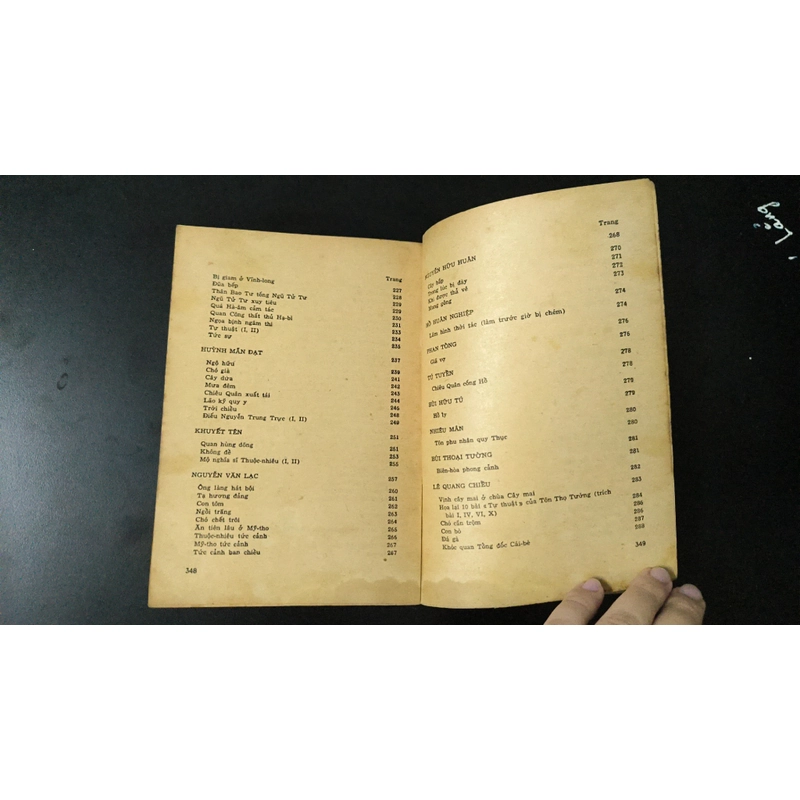 Trang
Bị giam ở Vĩnh-long 227
Đũa bếp 228
Thân Bao Tư tống Ngũ Tử Tư 229
Ngũ Tử Tư xuy tiêu 229
Quá Hà-âm cảm tác 230
Quan Công thất thủ Hạ-bì 231
Ngọa bịnh ngâm thi 233
Tự thuật (I, II) 234
Tức sự 235
HUỲNH MẪN ĐẠT 237
Ngộ hữu 239
Chó già 241
Cây dừa 242
Mưa đêm 243
Chiêu Quân xuất tái 244
Lão kỹ quy y 245
Trời chiều 248
Điếu Nguyễn Trung Trực (I, II) 249
KHUYẾT TÊN 251
Quan hùng dõng 251
Không đề 253
Mộ nghĩa sĩ Thuộc-nhiêu (I, II) 255
NGUYỄN VĂN LẠC 257
Ông làng hát bội 260
Tạ hương đảng 261
Con tôm 262
Ngồi trăng 263
Chó chết trôi 264
Ăn tiên lâu ở Mỹ-tho 265
Thuộc-nhiêu tức cảnh 266
Mỹ-tho tức cảnh 267
Tức cảnh ban chiều 267
348
Trang
NGUYỄN HỮU HUÂN 268
Cây bếp 270
Trong lúc bị đày 271
Khi được thả về 272
Mang gông 273
HỒ HUÂN NGHIỆP 274
Lâm hình thời tác (làm trước giờ bị chém) 274
PHAN TÒNG 276
Gả vợ 276
TÚ TUYỀN 278
Chiêu Quân cống Hồ 278
BÙI HỮU TÚ 279
Hồ ly 279
NHIÊU MÂN 280
Tôn phu nhân quy Thục 280
BÙI THOẠI TƯỜNG 281
Biên-hòa phong cảnh 281
LÊ QUANG CHIỂU 282
Vịnh cây mai ở chùa Cây mai 283
Họa lại 10 bài « Tự thuật » của Tôn Thọ Tường (trích
bài I, IV, VI, X) 284
Chó cắn trộm 286
Con bò 286
Đá gà 287
Khóc quan Tổng đốc Cái-bè 289
349